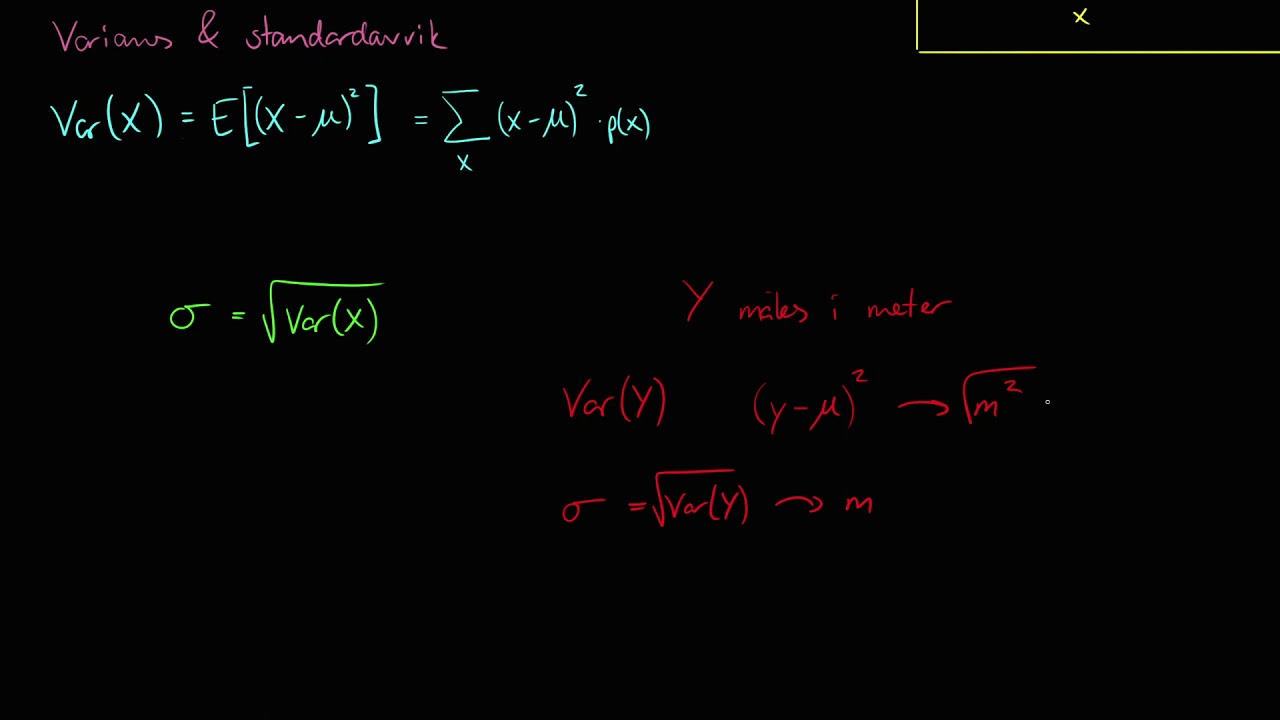 Varians & standardavvik
x
Var(X) = E[(X-μ)²] = ∑ₓ (x-μ)² · p(x)
σ = √Var(X)
Y måles i meter
Var(Y) (y-μ)² → √m²
σ = √Var(Y) → m